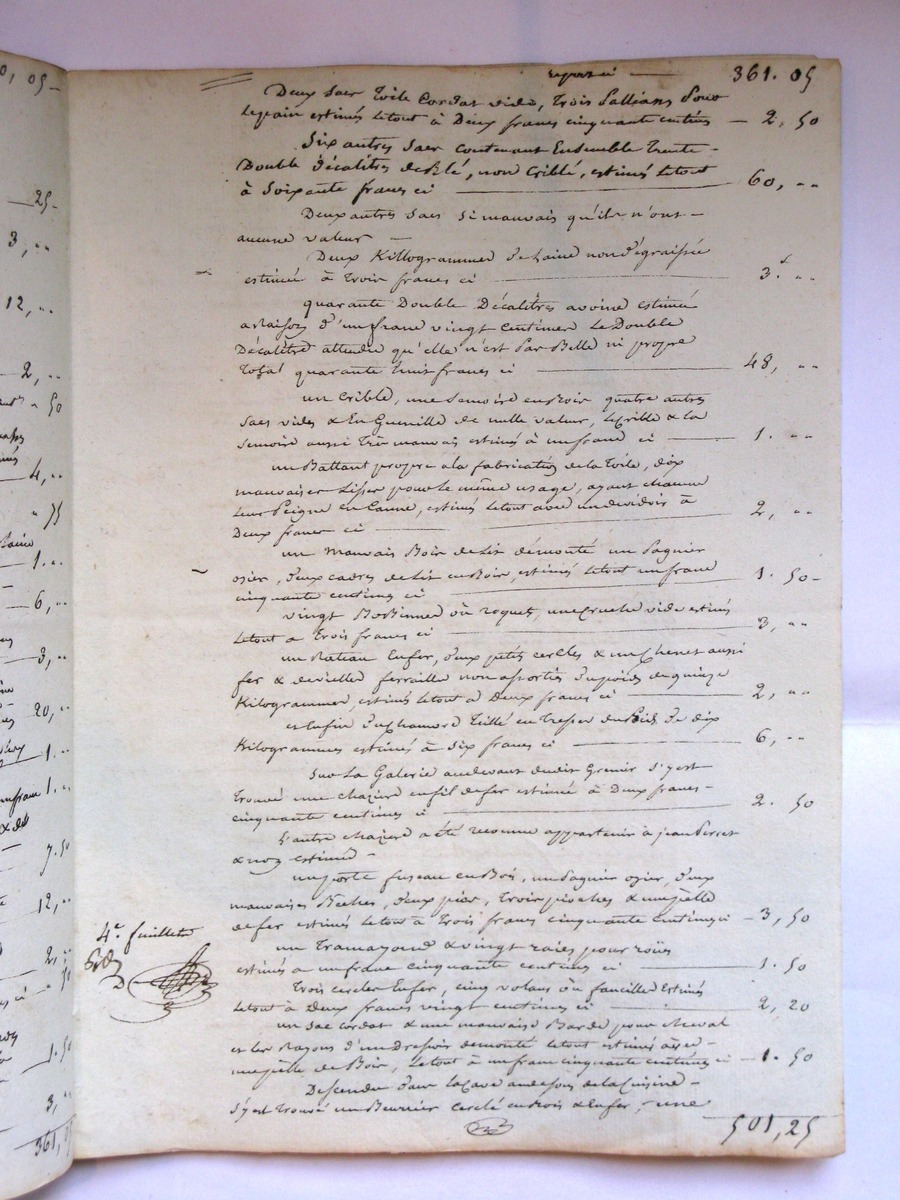 report ci 361. 05
Deux sacs toile cordat vide, trois palliass pour
le pain estimés le tout à Deux francs cinquante centimes — 2. 50
Six autres sacs contenant Ensemble Trente-
Double Décalitres de Blé, non criblé, estimés le tout
à Soixante francs ci 60, ..
Deux autres sacs si mauvais qu'ils n'ont
aucune valeur —
Deux Killogrammes de Laine non dégraissée
estimée à trois francs ci 3.f ..
quarante Double Décalitres avoine estimé
a raison d'un franc vingt centimes le Double
Décalitre attendu qu'elle n'est pas Belle ni propre
Total quarante huit francs ci 48, ..
un crible, une semoire en bois quatre autres
sacs vides & En Guenille de nulle valeur, le crible & la
semoire aussi très mauvais estimés à un franc ci 1. ..
un Battant propre a la fabrication de la toile, dix
mauvaises Lisses pour le même usage, ayant chacune
leur Peigne en canne, estimés le tout avec un devidoir à
Deux francs ci 2, ..
un mauvais Bois de Lit démonté un pagnier
osier, deux cadres de Lit en Bois, estimés le tout un franc
cinquante centimes ci 1. 50 -
vingt Bobinnes où roquets, une cruche vide estimés
le tout a trois francs ci 3, ..
un Rateau En fer, deux petits cercles & un chenet aussi
fer & de vielles ferraille non assorties du poids de quinze
Kilogrammes, estimés le tout a Deux francs ci 2, ..
et Enfin du chamord Teillé en Tresses du Poids de dix
Kilogrammes estimés à six francs ci 6, ..
Sur la Galerie au devant dudit Grenier s'y est
trouvé une chazere en fil de fer estimée à Deux francs-
cinquante centimes ci 2. 50
L'autre chazere a été reconnue appartenir à jean Perret
& non estimée -
un porte fuseau en Bois, un pagnier osier, deux
mauvaises Bêches, deux pics, trois pioches & une pelle
de fer estimés le tout à trois francs cinquante centimes ci — 3, 50
un Tramazond & vingt raies pour roües
estimés a un franc cinquante centimes ci 1. 50
4.e feuillet
Trois cercles En fer, cinq volans où faucilles Estimés
le tout à Deux francs vingt centimes ci 2, 20
un sac cordat & une mauvaise Barde pour cheval
et les Rayons d'un Dressoir démonté le tout estimés avec
une pelle de Bois, le tout à un franc cinquante centimes ci — 1. 50
Descendu dans la cave au dessous de la cuisine -
s'y est trouvé un Beurrier cerclé en Bois & En fer, une
501, 25
0, 05
25 -
3, ..
12, ..
2, ..
50
4, ..
75
1. ..
6, ..
3, ..
20, ..
1. ..
1. ..
7. 50
12, ..
2, ..
1. 50
3, ..
361,